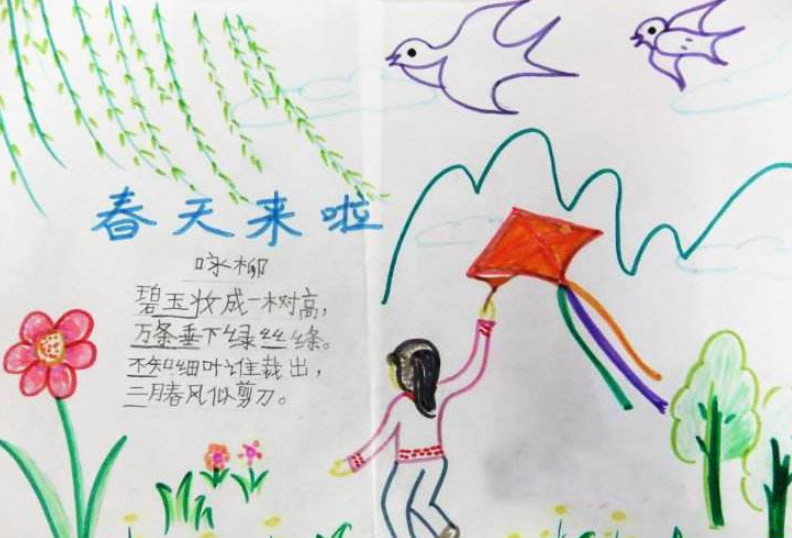 春天来啦
咏柳
碧玉妆成一树高，
万条垂下绿丝绦。
不知细叶谁裁出，
二月春风似剪刀。